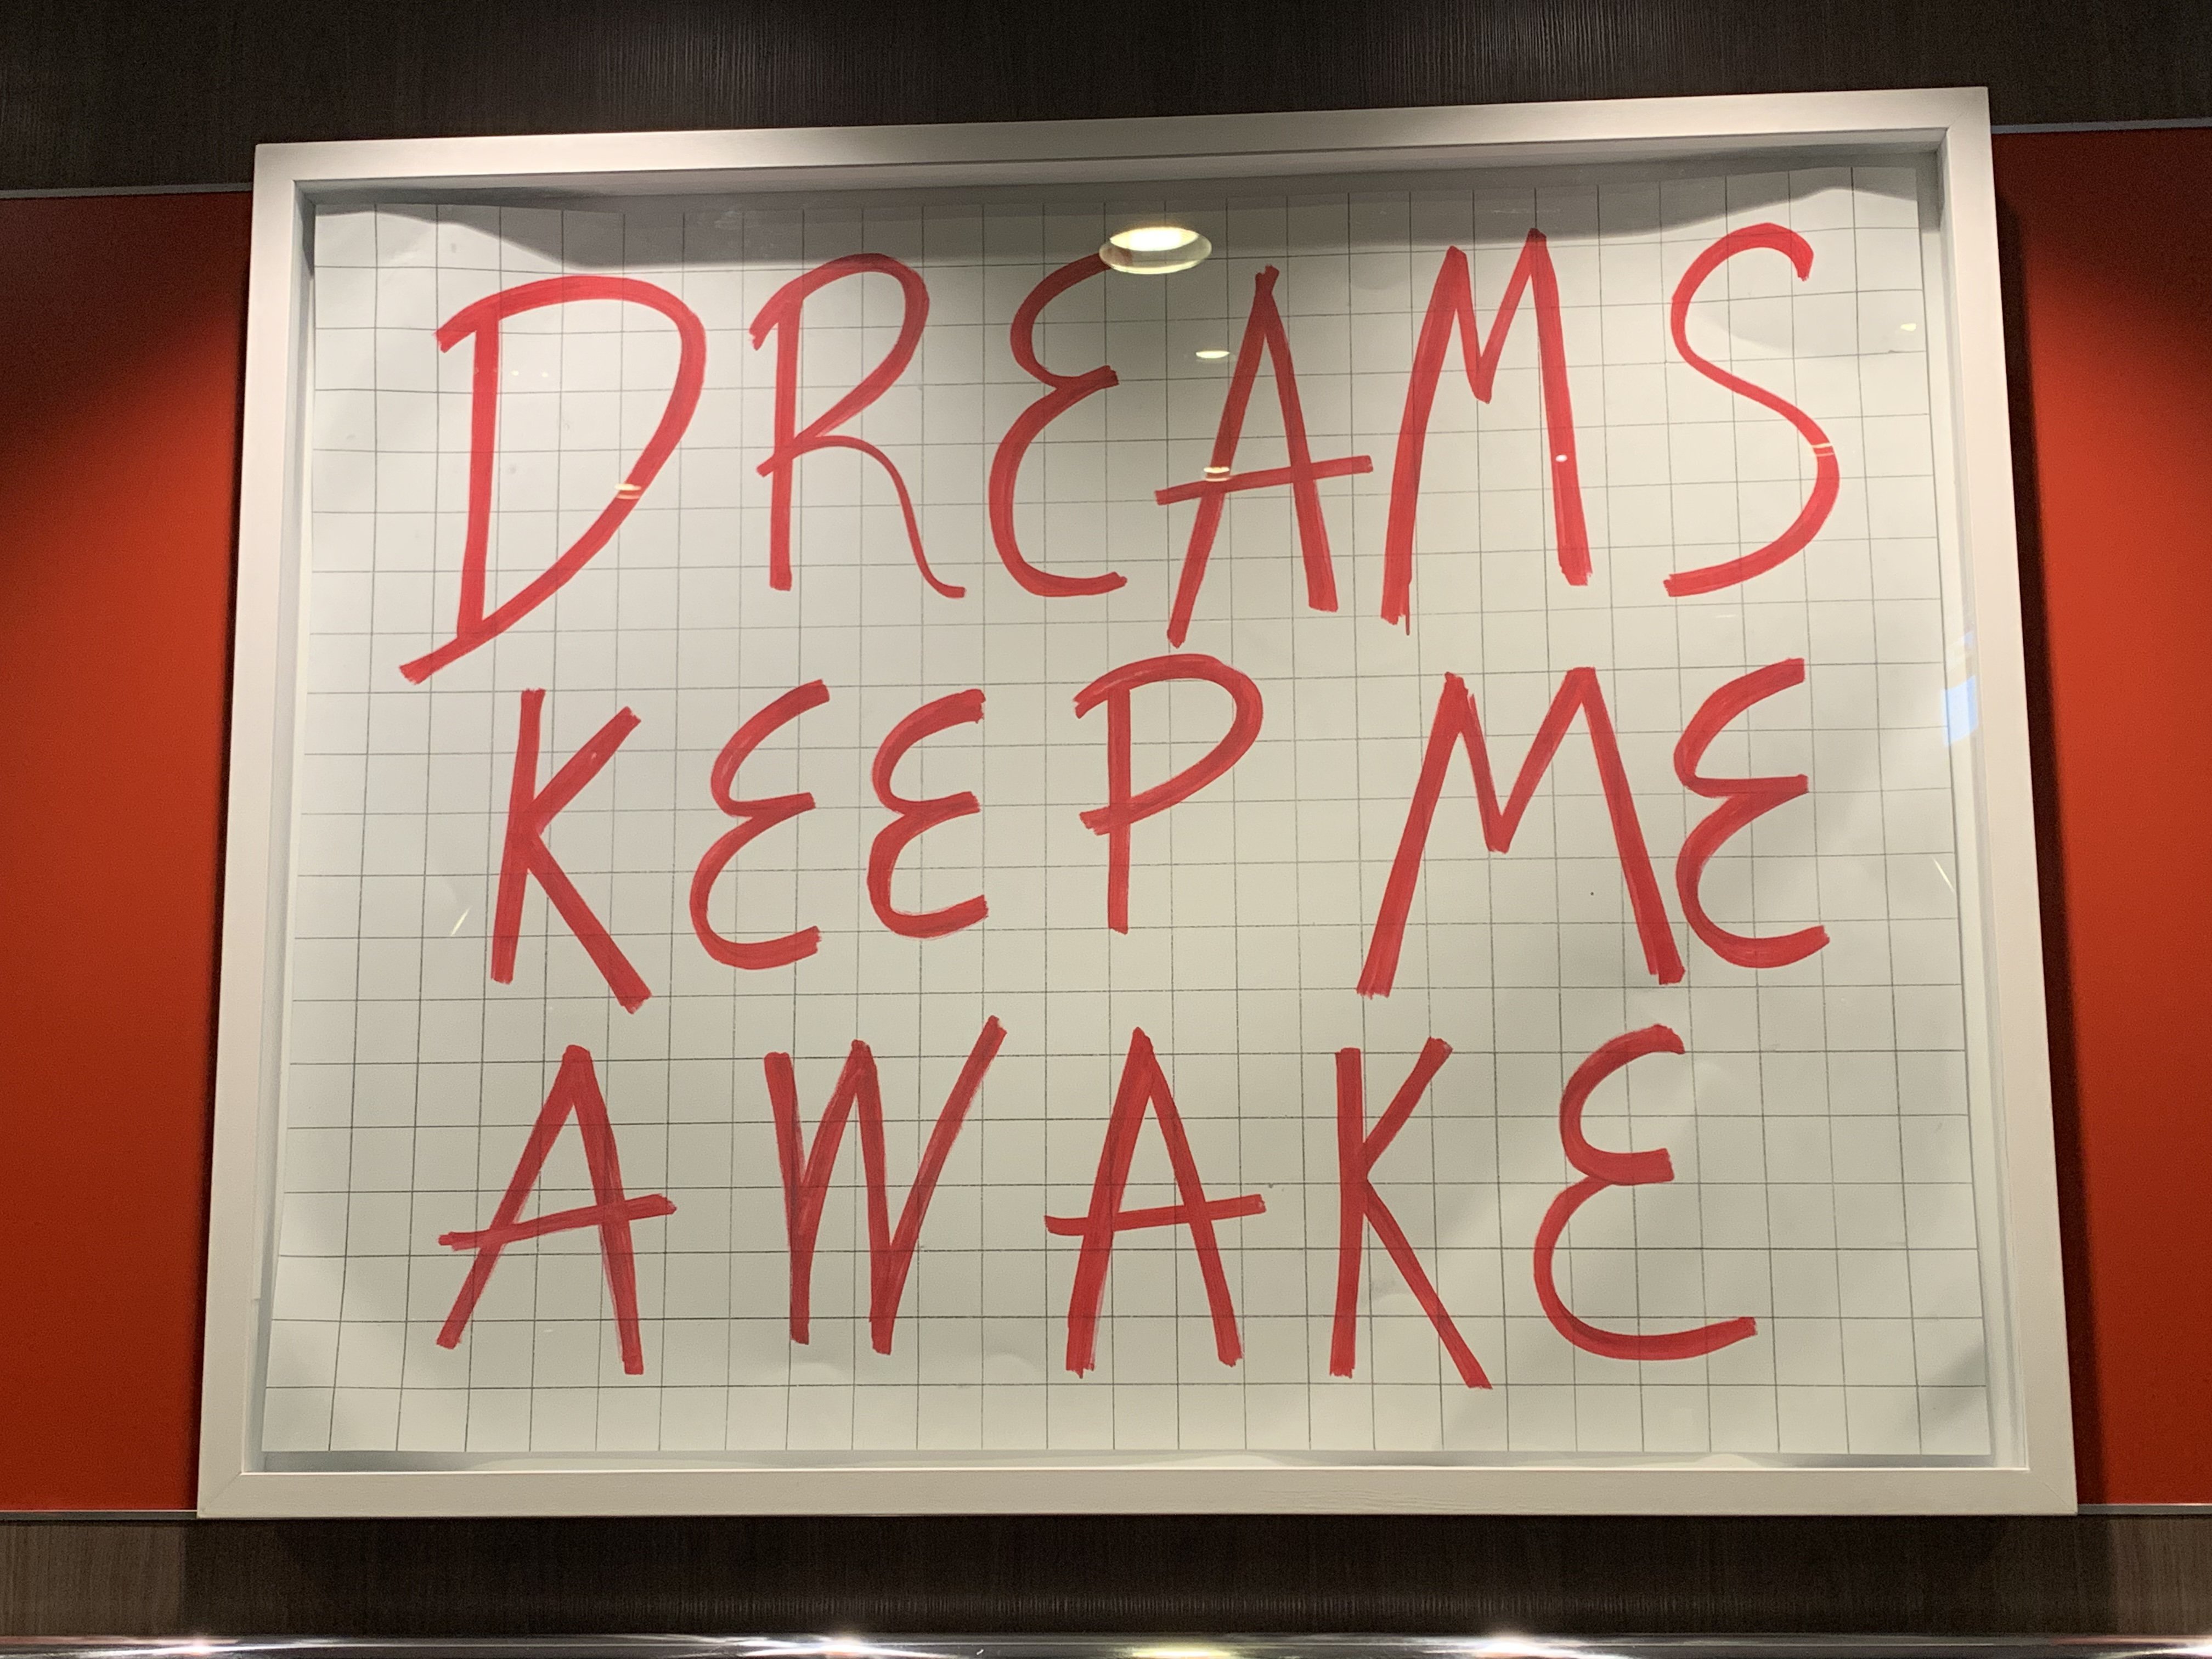 DREAMS
KEEP ME
AWAKE